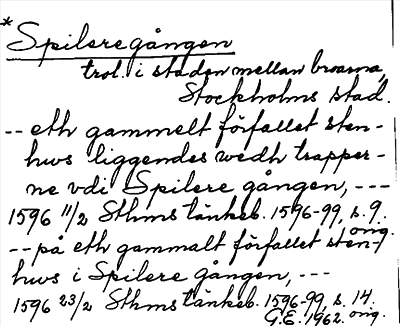 * Spileregången
trol. i staden mellan broarna,
Stockholms stad.
-- eth gammelt förfallet sten-
hws liggendes wedh trapper-
ne vdi Spilere gången, ---
1596 11/2 Sthms tänkeb. 1596-99, s. 9.
orig.
-- på eth gammalt förfallet sten-/
hws i Spilere gången, ---
1596 23/2 Sthms tänkeb. 1596-99, s. 14.
G.E. 1962. orig.